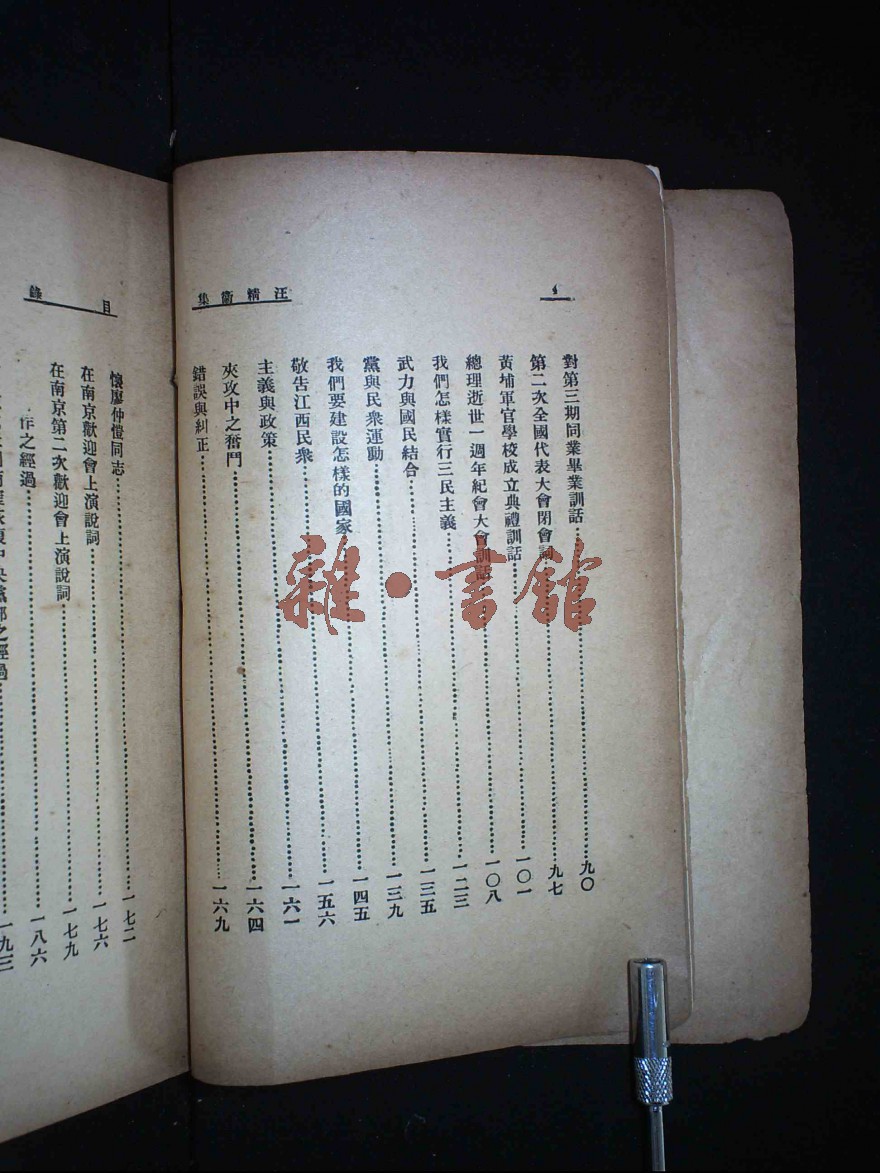 汪精衛集
4
對第三期同業畢業訓話……九〇
第二次全國代表大會閉會詞……九七
黃埔軍官學校成立典禮訓話……一〇一
總理逝世一週年紀會大會訓話……一〇八
我們怎樣實行三民主義……一二三
武力與國民結合……一三五
黨與民衆運動……一三九
我們要建設怎樣的國家……一四五
敬告江西民衆……一五六
主義與政策……一六一
夾攻中之奮鬥……一六四
錯誤與糾正……一六九
目錄
懷廖仲愷同志……一七二
在南京歡迎會上演說詞……一七六
在南京第二次歡迎會上演說詞……一七九
作之經過……一八六
中央黨部之經過……一九三
雜·書館